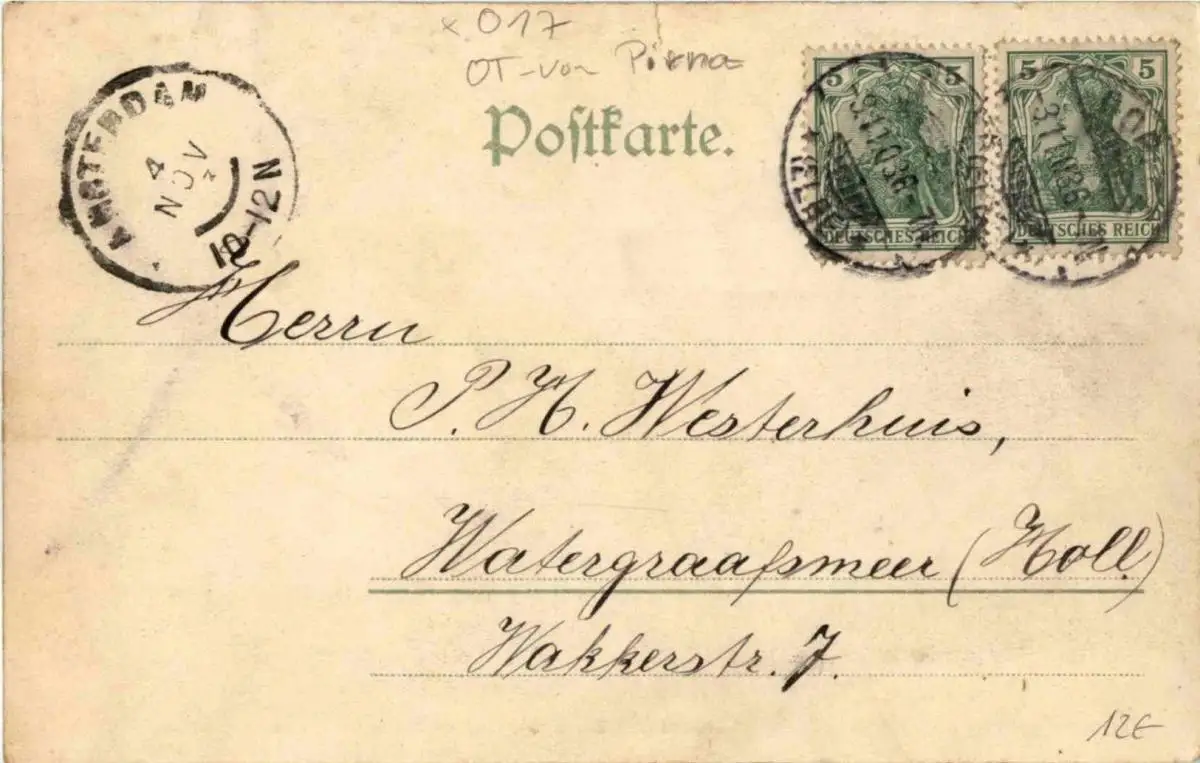 x 017
OT-von Pirna
Postkarte.
AMSTERDAM
4
NOV
10-12N
5 5
DEUTSCHES REICH
5 5
DEUTSCHES REICH
Herrn
P. H. Westerhuis,
Watergraafsmeer (Holl.)
Wakkerstr. 7.
12€